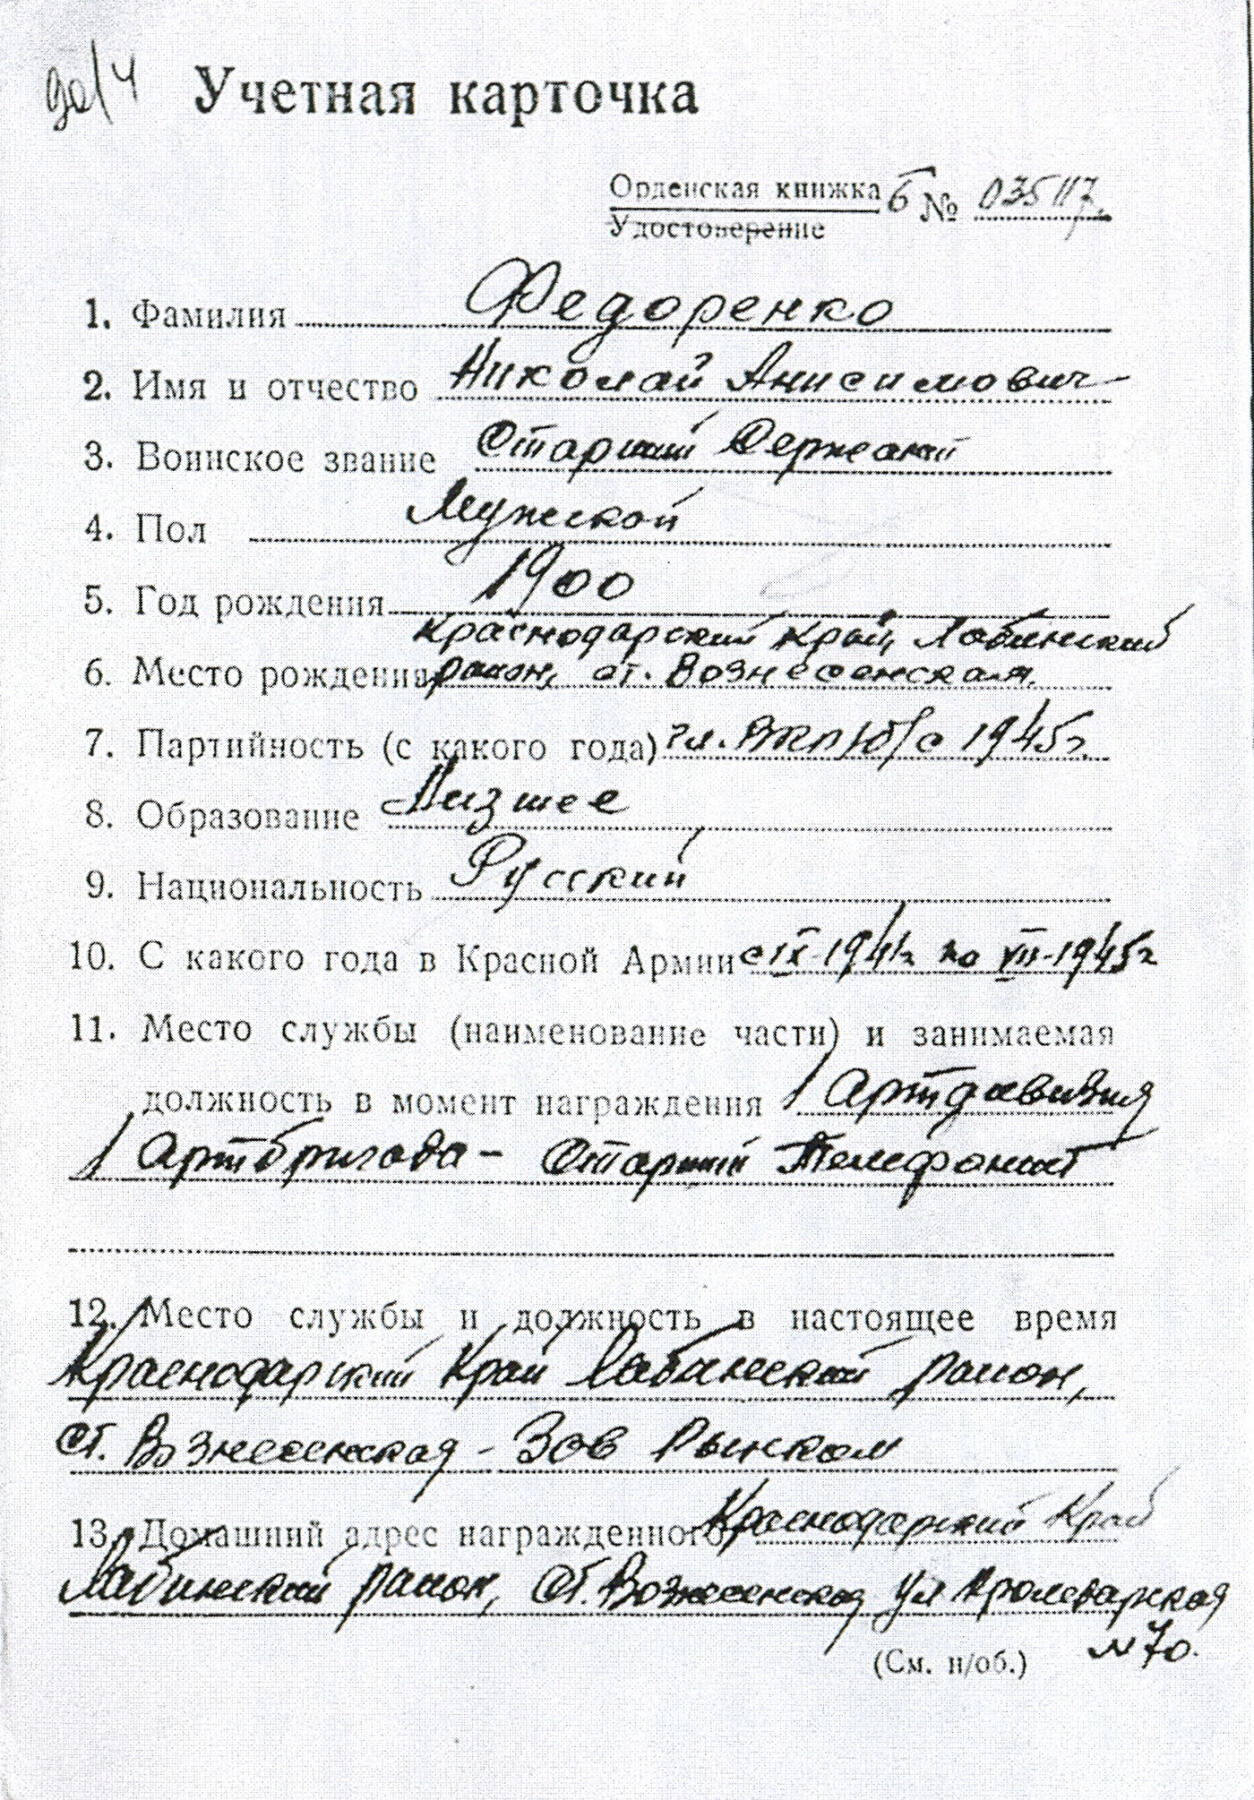 до/ч Учетная карточка
Орденская книжка Б № 035117.
Удостоверение
1. Фамилия Федоренко
2. Имя и отчество Николай Анисимович
3. Воинское звание Старший Сержант
4. Пол Мужской
5. Год рождения 1900
Краснодарский край, Лабинский
6. Место рождения район, ст. Вознесенская.
7. Партийность (с какого года) чл. ВКП/б/ с 1945г.
8. Образование Низшее
9. Национальность Русский
10. С какого года в Красной Армии с IX-1941г по VII-1945г
11. Место службы (наименование части) и занимаемая
должность в момент награждения 1 Артдивизия
1 Артбригада - Старший Телефонист
12. Место службы и должность в настоящее время
Краснодарский Край Лабинский район,
ст. Вознесенская - Зав Рынком
13. Домашний адрес награжденного Краснодарский Край
Лабинский район, ст. Вознесенская ул Пролетарская
(См. н/об.) № 70.